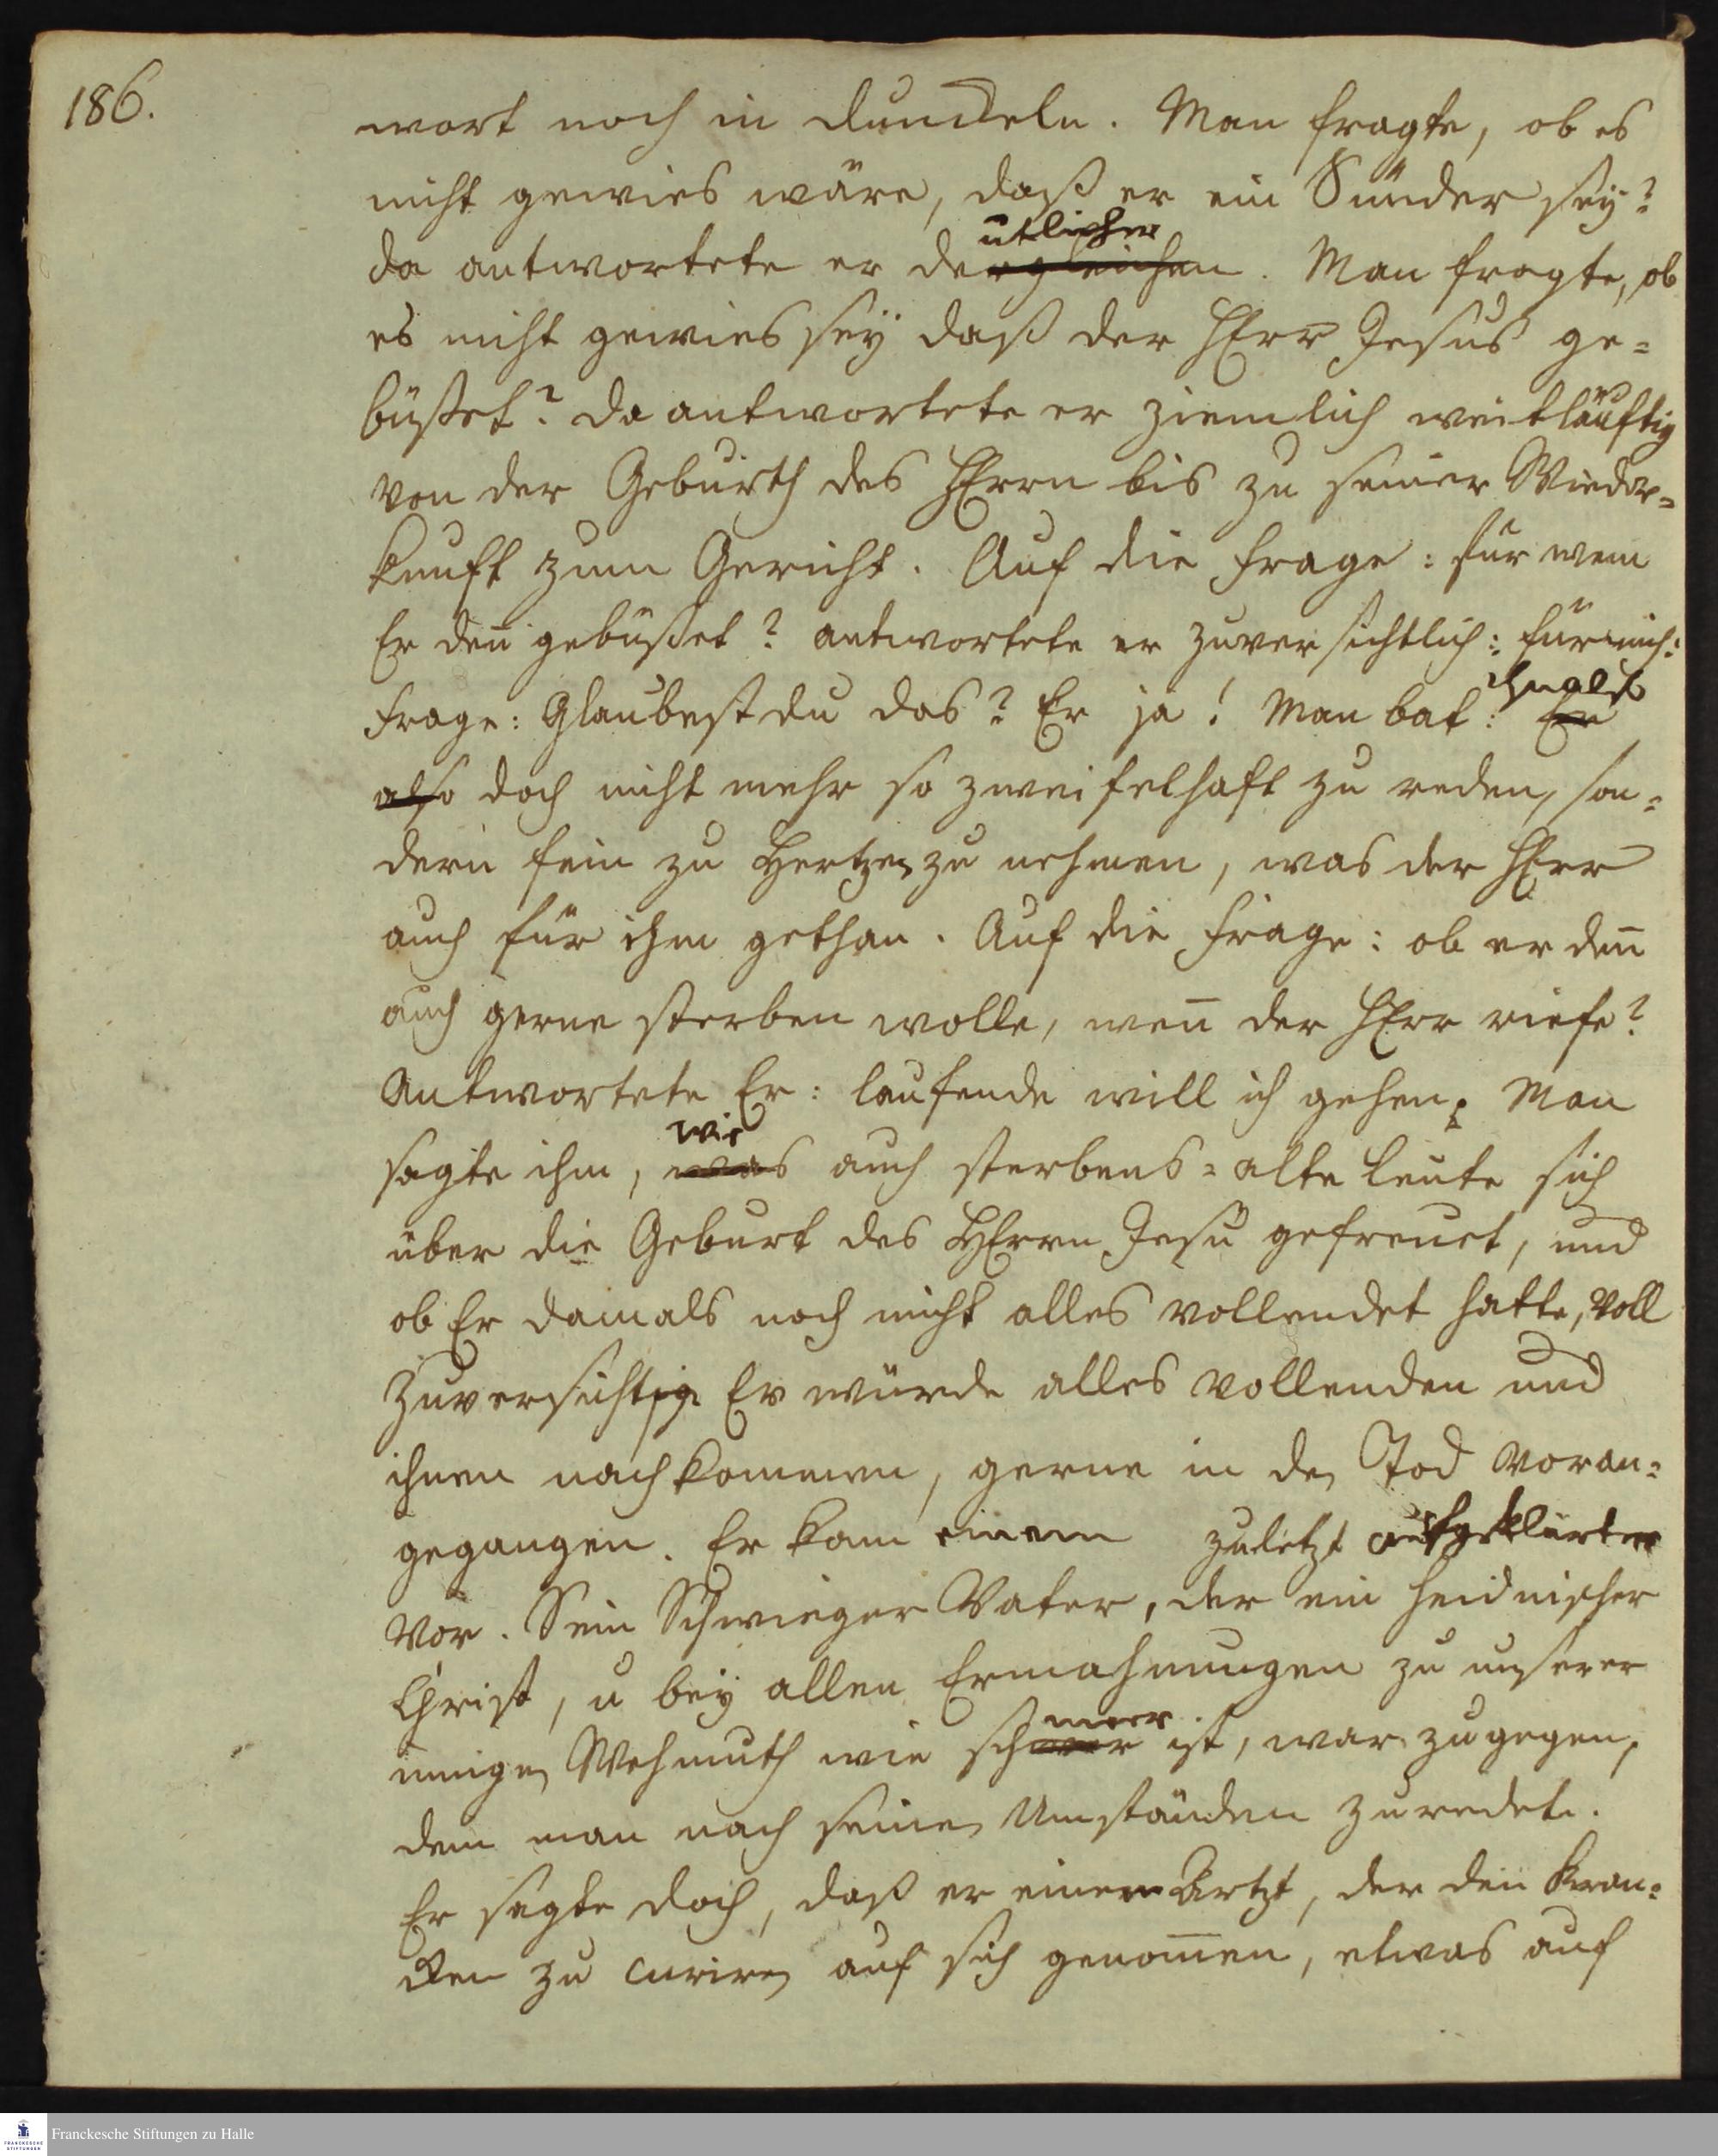 186.
wort noch in dunckeln. Man fragte, ob es
nicht gewies wäre, daß er ein Sünder sey?
ütlicher
da antwortete er dergleichen. Man fragte, ob
es nicht gewies sey daß der HErr Jesus ge=
büßet? da antwortete er ziemlich weitläuftig
von der Geburth des HErrn bis zu seiner Wieder=
kunft zum Gericht. Auf die Frage: für wem
Er den̄ gebüßet? antwortete er zuversichtlich: für mich:
Frage: Glaubest du das? Er ja! Man bat: Er
also doch nicht mehr so zweifelhaft zu reden, son=
dern fein zu Hertzen zu nehmen, was der HErr
auch für ihm gethan. Auf die Frage: ob er den̄
auch gerne sterben wolle, wen̄ der HErr riefe?
Antwortete Er: laufende will ich gehen. Man
wie
sagte ihm, was auch sterbens=alte Leute sich
über die Geburt des HErrn Jesu gefreuet, und
ob Er damals noch nicht alles vollendet hatte, voll
Zuversicht Er würde alles vollenden und
ihnen nachkommen, gerne in den Tod voran=
gegangen. Er kam einem zuletzt aufgeklärter
vor. Sein Schwieger Vater, der ein heidnischer
Christ, u bey allen Ermahnungen zu unserer
innigen Wehmuth wie schwer ist, war zugegen,
dem man nach seinen Umständen zuredete.
Er sagte doch, daß er einem Artzt, der den Kran=
cken zu curiren auf sich genom̄en, etwas auf
Franckesche Stiftungen zu Halle